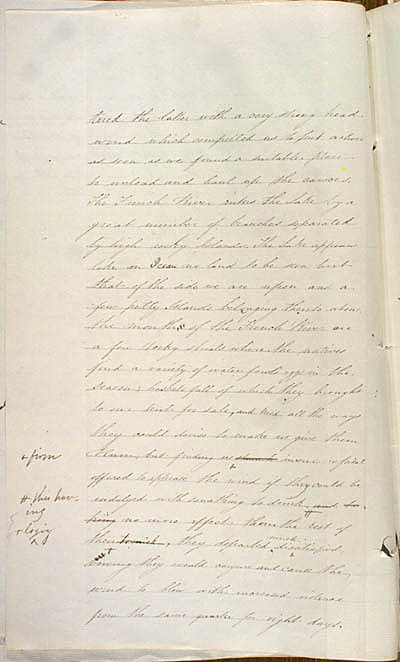 tered the latter with a very strong head
wind which compelled us to put ashore
as soon as we found a suitable place
to unload and haul up the canoes.
The French River enters the Lake by a
great number of branches separated
by high rocky Islands. The Lake appears
like an Ocean no land to be seen but
that of the side we are upon and a
few petty Islands belonging thereto about
the mouths of the French River are
a few Rocky shoals where the natives
find a variety of water fowls eggs in the
season; baskets full of which they brought
to our tents for sale, and tried all the ways
they could devise to make us give them
Rum, but finding us inexorable
offered to appease the wind if they could be
indulged with something to drink, and
+ firm
# this hav-
ing
no more effect than the rest of
their
+ logic
, they departed much displeased,
vowing they would conjure and cause the
wind to blow with increased violence
from the same quarter for eight days.